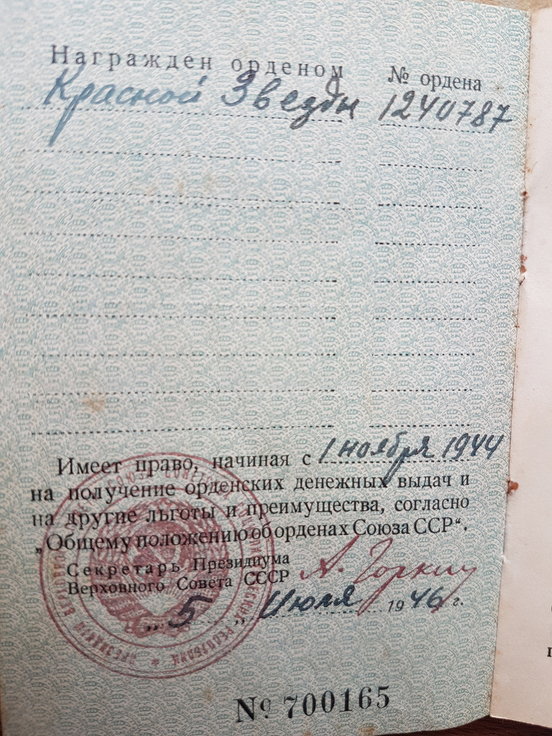 Награжден орденом № ордена
Красной Звезды 1240787
Имеет право, начиная с 1 ноября 1944
на получение орденских денежных выдач и
на другие льготы и преимущества, согласно
„Общему положению об орденах Союза ССР“.
Секретарь Президиума
Верховного Совета СССР А. Горкин
„5„ Июля 1946 г.
№ 700165